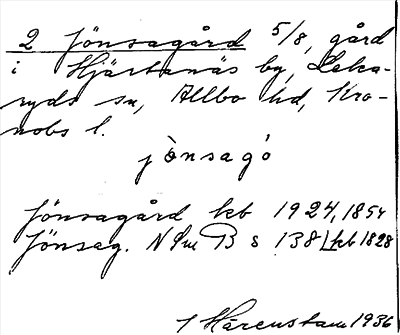 2 Jönsagård 5/8, gård
i Hjärtanäs by, Leka-
ryds sn, Allbo hd, Kro-
nobs l.
jònsagó
Jönsagård kb 1924, 1854
Jönsag. NSm B s 138 kb 1828
1 Härenstam 1936